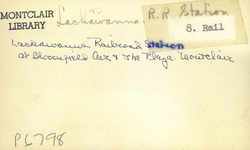 MONTCLAIR
LIBRARY
Lackawanna R.R. Station
8. Rail
Lackawanna Railroad Station
at Bloomfield Ave & The Plaza Montclair
PL798